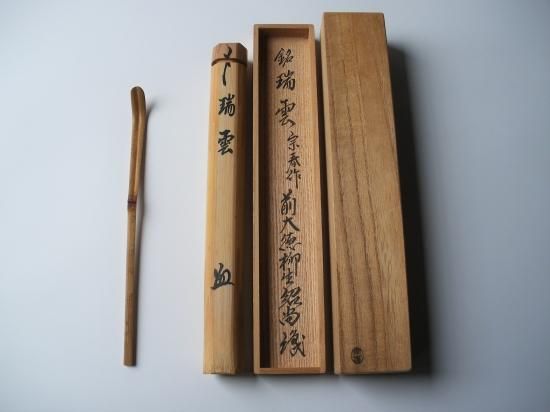 銘 瑞雲 宗春作 前大徳柳生紹尚識
瑞雲